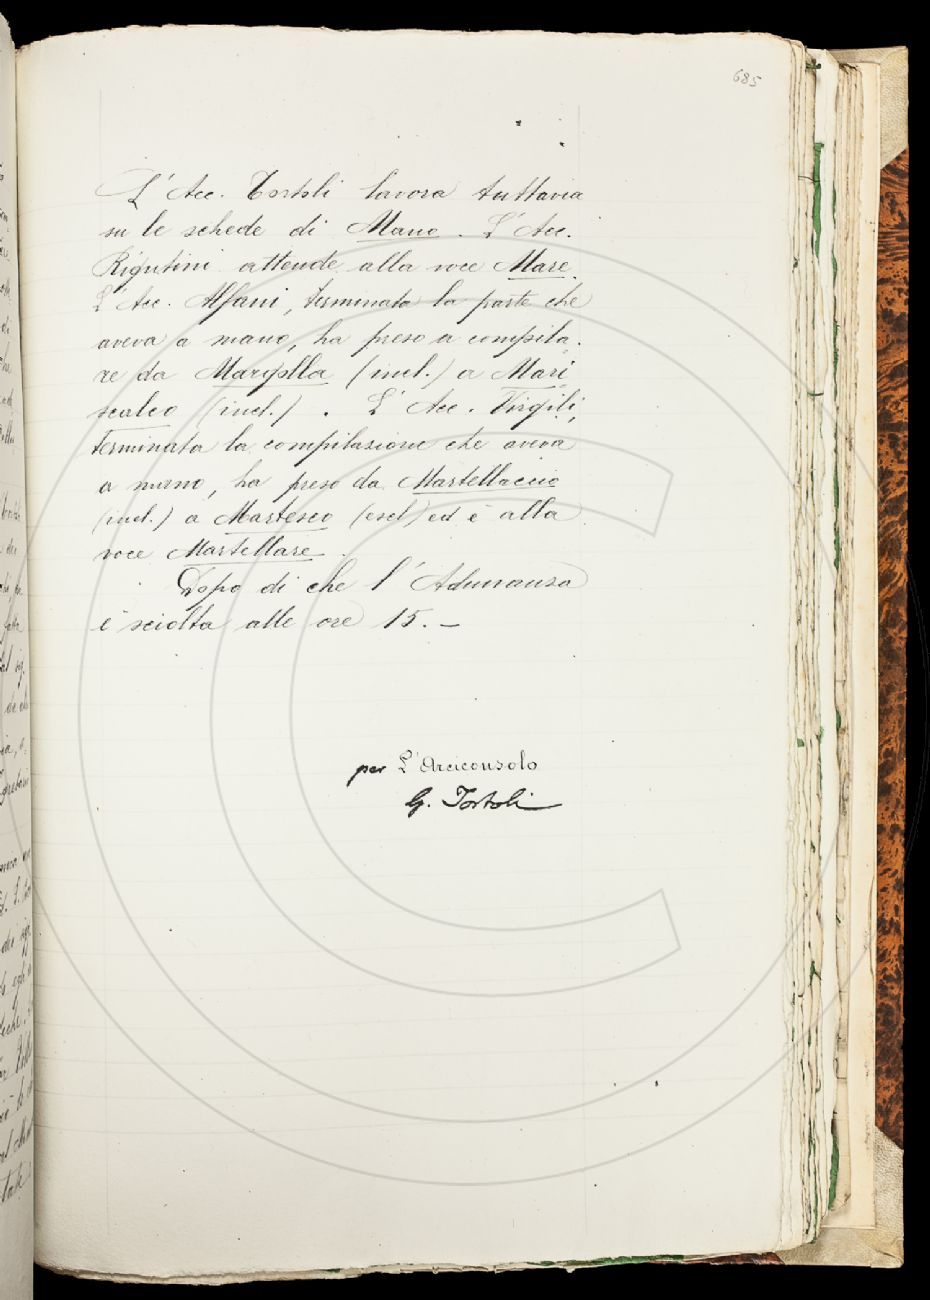 685
L'Acc. Tortoli lavora tuttavia
su le schede di Mano. L'Acc.
Rigutini attende alla voce Mare.
L'Acc. Alfani, terminata la parte che
aveva a mano, ha preso a compila-
re da (incl.) a Mari
scalco (incl.). L'Acc. Virgili,
terminata la compilazione che aveva
a mano, ha preso da Martellaccio
(incl.) a Martesco (escl.) ed è alla
voce Martellare.
Dopo di che l'Adunanza
è sciolta alle ore 15. —
per L'Arciconsolo
G. Tortoli